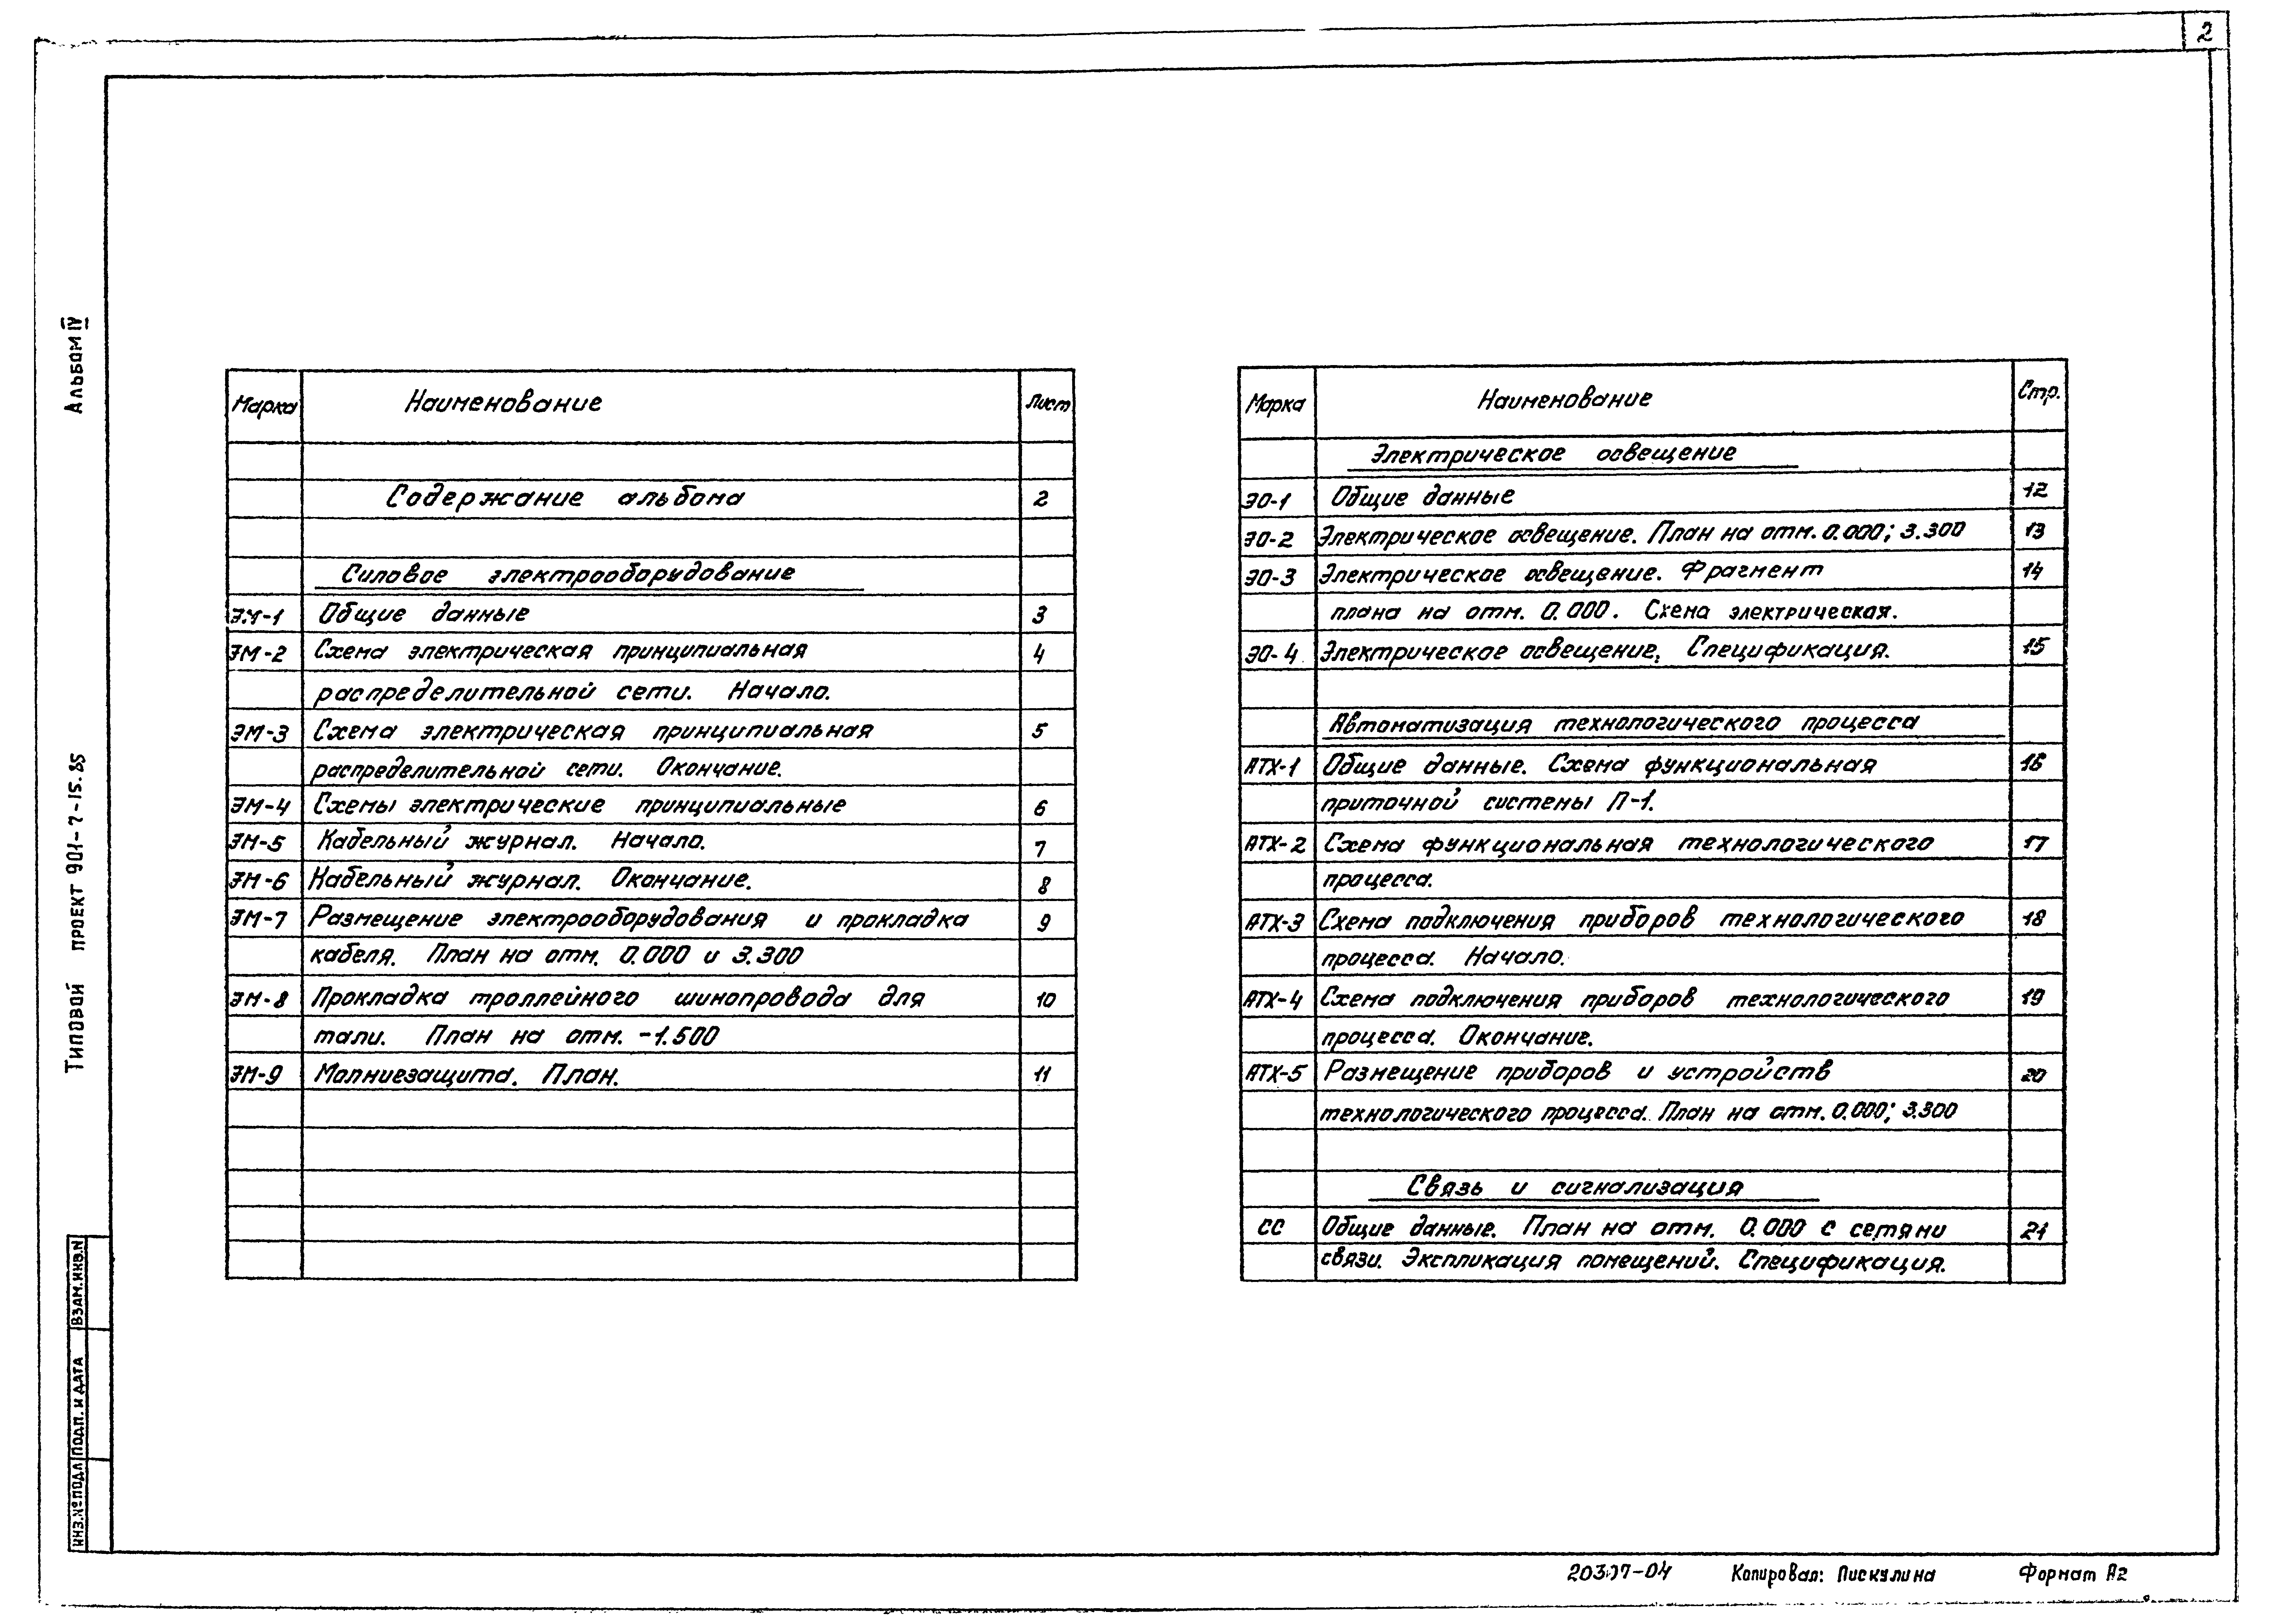 2
Альбом IV
Типовой проект 901-7-15.85
Марка Наименование Лист
Содержание альбома 2
Силовое электрооборудование
ЭМ-1 Общие данные 3
ЭМ-2 Схема электрическая принципиальная 4
распределительной сети. Начало.
ЭМ-3 Схема электрическая принципиальная 5
распределительной сети. Окончание.
ЭМ-4 Схемы электрические принципиальные 6
ЭМ-5 Кабельный журнал. Начало. 7
ЭМ-6 Кабельный журнал. Окончание. 8
ЭМ-7 Размещение электрооборудования и прокладка 9
кабеля. План на отм. 0.000 и 3.300
ЭМ-8 Прокладка троллейного шинопровода для 10
тали. План на отм. -1.500
ЭМ-9 Молниезащита. План. 11
Марка Наименование Стр.
Электрическое освещение
ЭО-1 Общие данные 12
ЭО-2 Электрическое освещение. План на отм. 0.000; 3.300 13
ЭО-3 Электрическое освещение. Фрагмент 14
плана на отм. 0.000. Схема электрическая.
ЭО-4 Электрическое освещение. Спецификация. 15
Автоматизация технологического процесса
АТХ-1 Общие данные. Схема функциональная 16
приточной системы П-1.
АТХ-2 Схема функциональная технологического 17
процесса.
АТХ-3 Схема подключения приборов технологического 18
процесса. Начало.
АТХ-4 Схема подключения приборов технологического 19
процесса. Окончание.
АТХ-5 Размещение приборов и устройств 20
технологического процесса. План на отм. 0.000; 3.300
Связь и сигнализация
СС Общие данные. План на отм. 0.000 с сетями 21
связи. Экспликация помещений. Спецификация.
Взам.инв.N
Подп. и дата
Инв.№подл
20307-04 Копировал: Пискулина Формат А2